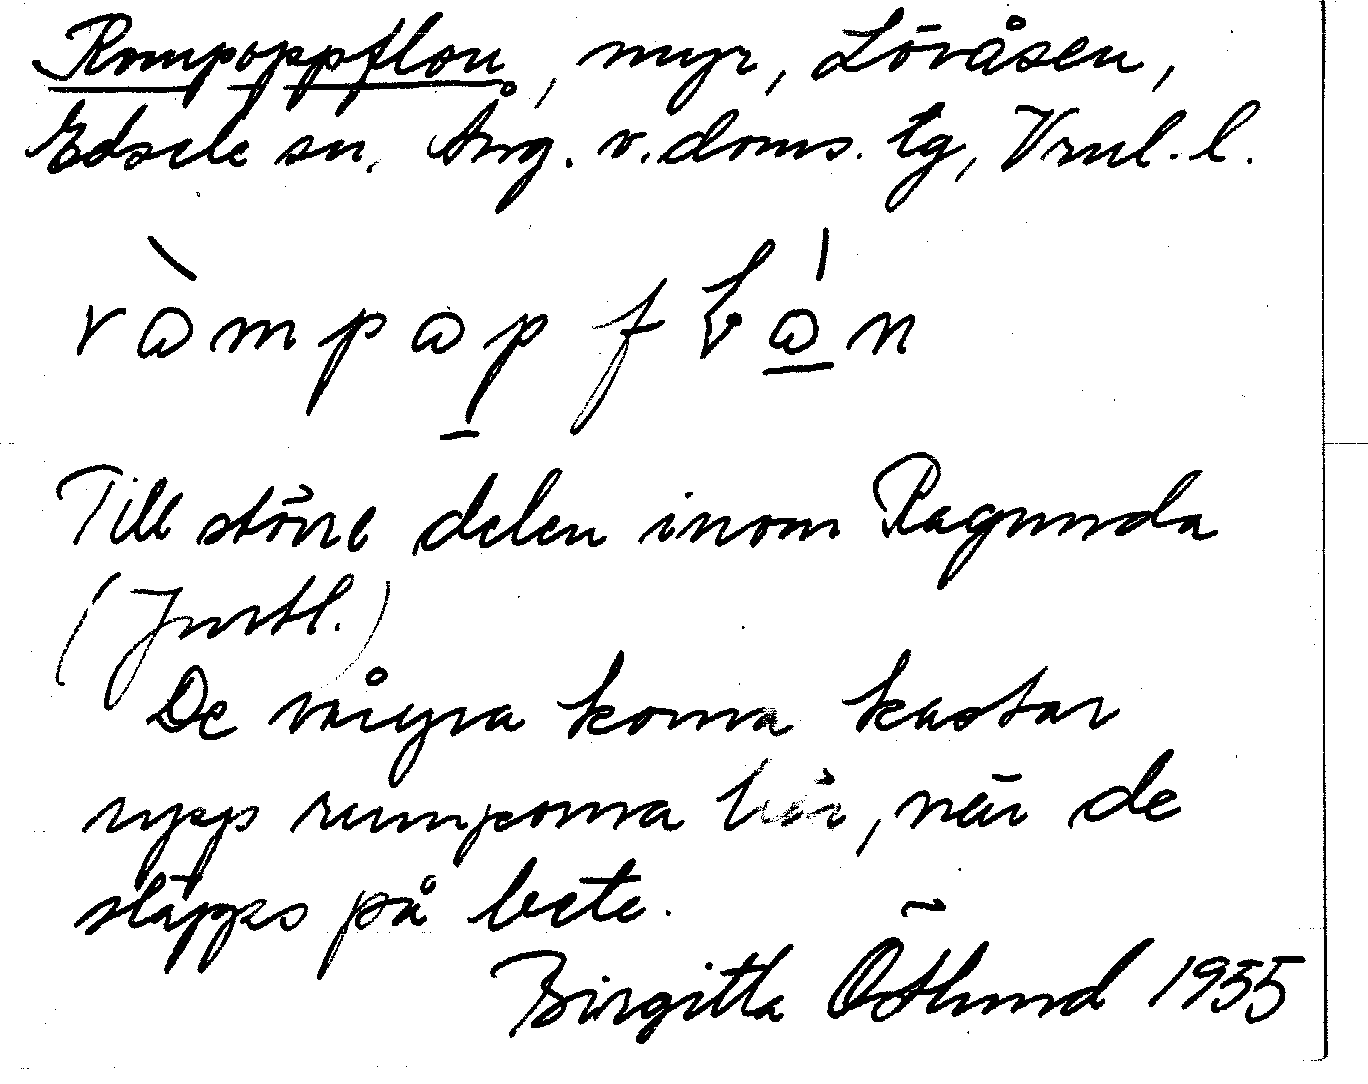 Rompoppflon, myr, Lövåsen,
Edsele sn. Ång. v. doms. tg, Vrnl. l.
ròmpop fló̱n
Till större delen inom Ragunda
(Jmtl.)
De många korna kastar
upp rumporna här, när de
släpps på bete.
Birgitta Östlund 1955